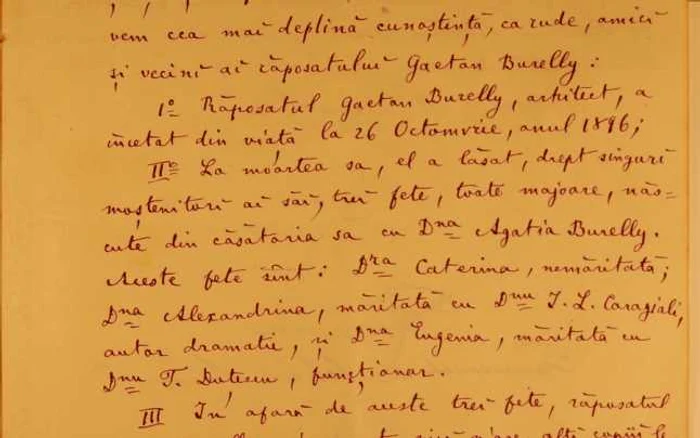 vem cea mai deplină cunoștință, ca rude, amici
și vecini ai răposatului Gaetan Burelly:
Iº Răposatul Gaetan Burelly, arhitect, a
încetat din viață la 26 Octomvrie, anul 1896;
IIº La moartea sa, el a lăsat, drept singuri
moștenitori ai săi, trei fete, toate majoare, năs-
cute din căsătoria sa cu Dna Agatia Burelly.
Aceste fete sînt: Dra Caterina, nemăritată;
Dna Alexandrina, măritată cu Dnu I. L. Caragiali,
autor dramatic, și Dna Eugenia, măritată cu
Dnu T. Duțescu, funcționar.
III În afară de aceste trei fete, răposatul